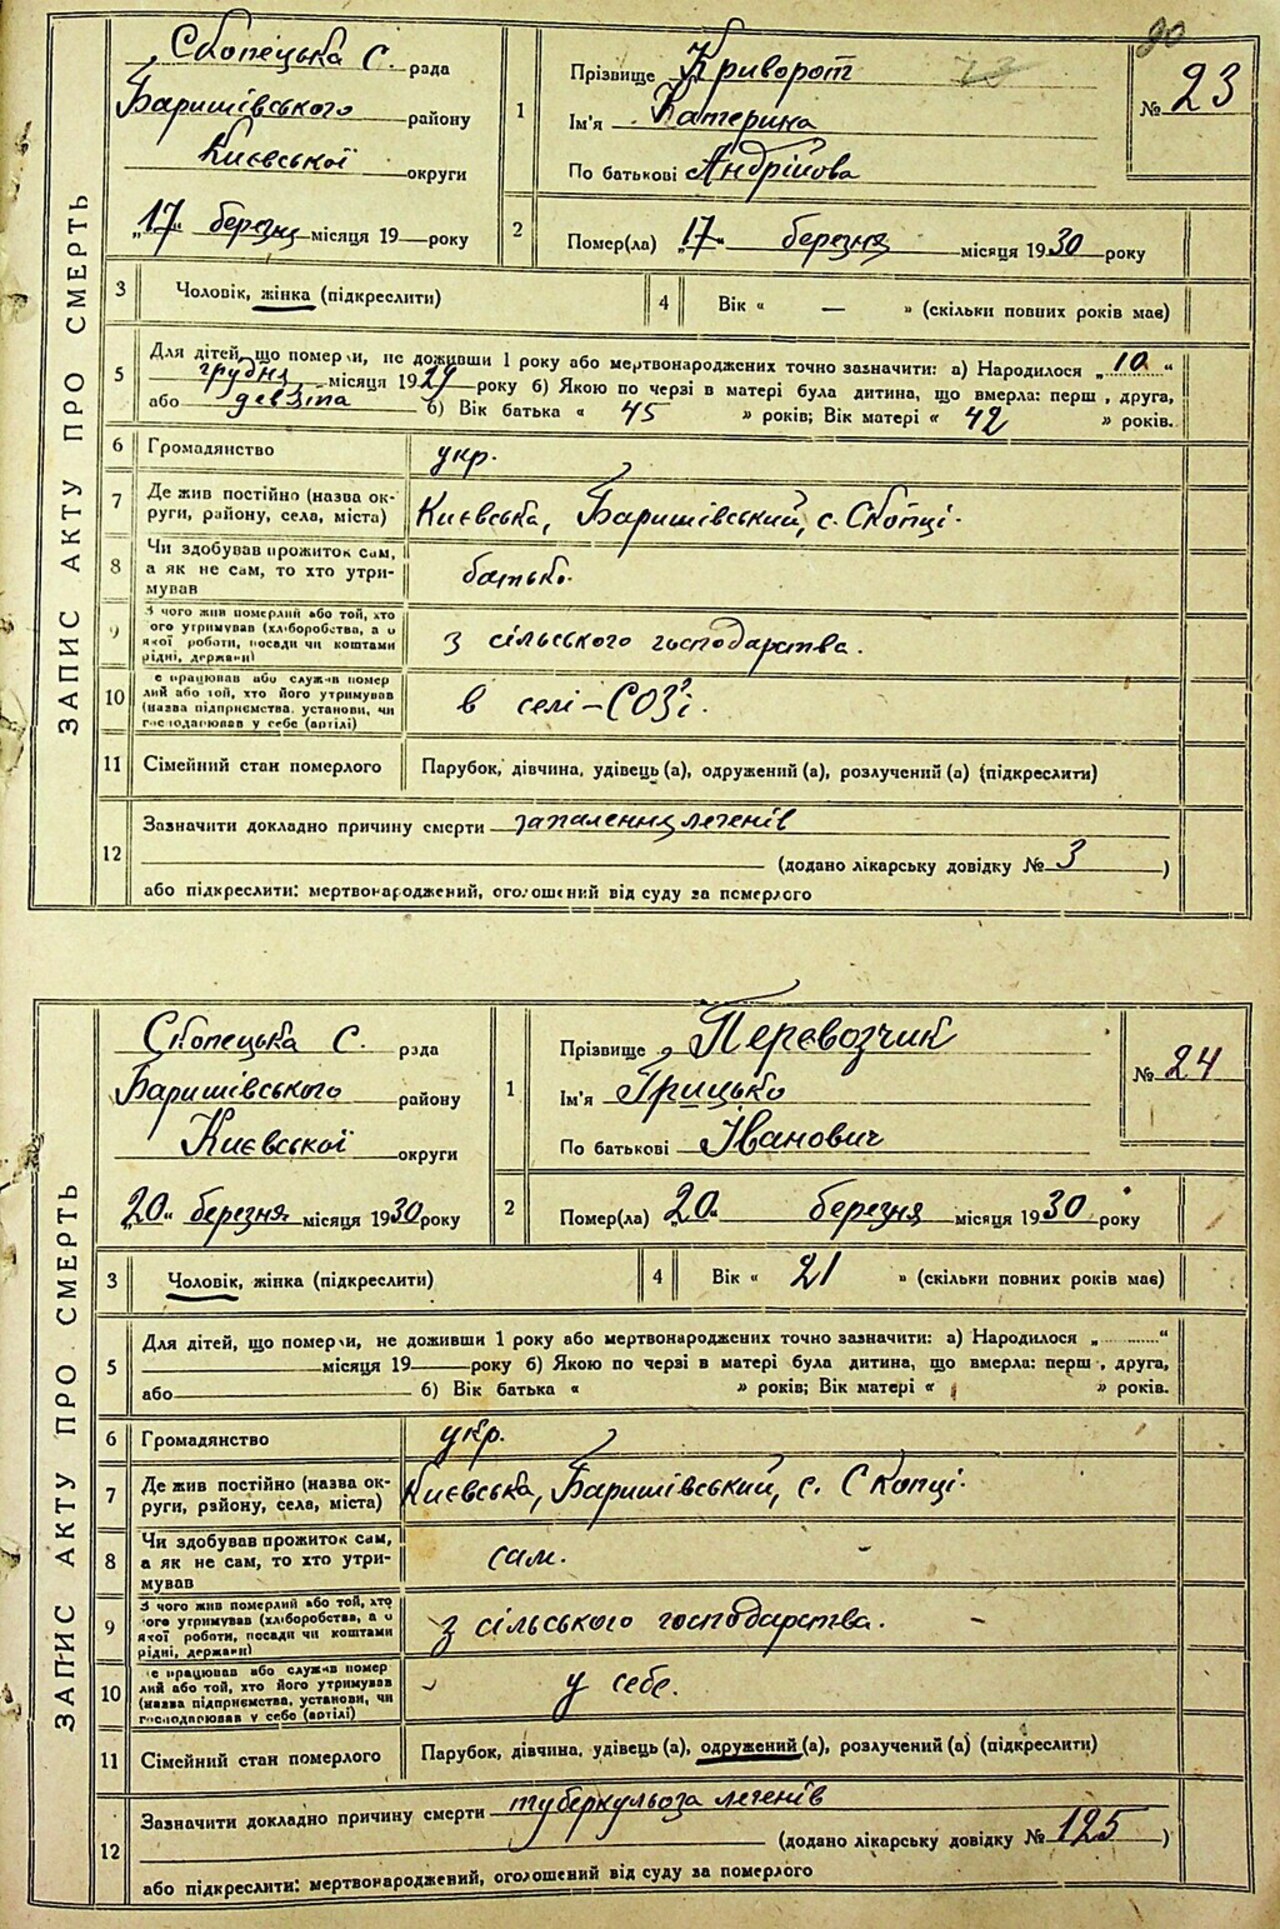 90
ЗАПИС АКТУ ПРО СМЕРТЬ
Скопецька с. рада
Баришівського району
Київської округи
„17“ березня місяця 19 року
1
Прізвище Криворот
Ім'я Катерина
По батькові Андрійова
№ 23
2
Помер(ла) „17“ березня місяця 1930 року
3 Чоловік, жінка (підкреслити)
4 Вік « — » (скільки повних років має)
5 Для дітей, що померли, не доживши 1 року або мертвонароджених точно зазначити: а) Народилося „10“
грудня місяця 1929 року б) Якою по черзі в матері була дитина, що вмерла: перш , друга,
або дев'зіта б) Вік батька « 45 » років; Вік матері « 42 » років.
6 Громадянство укр.
7 Де жив постійно (назва ок-
руги, району, села, міста) Київська, Баришівський, с. Скопці.
8 Чи здобував прожиток сам,
а як не сам, то хто утри-
мував батько.
9 З чого жив померлий або той, хто
ого утримував (хліборобства, а о
якої роботи, посади чи коштами
рідні, держави) з сільського господарства.
10 е працював або служив помер
лий або той, хто його утримував
(назва підприємства, установи, чи
господарював у себе (артілі) в селі – СОЗ'і.
11 Сімейний стан померлого Парубок, дівчина, удівець (а), одружений (а), розлучений (а) (підкреслити)
12 Зазначити докладно причину смерти запалення легенів
(додано лікарську довідку № 3 )
або підкреслити: мертвонароджений, оголошений від суду за померлого
ЗАПИС АКТУ ПРО СМЕРТЬ
Скопецька с. рада
Баришівського району
Києвської округи
„20“ березня місяця 1930 року
1
Прізвище Перевозчик
Ім'я Грицько
По батькові Іванович
№ 24
2
Помер(ла) „20“ березня місяця 1930 року
3 Чоловік, жінка (підкреслити)
4 Вік « 21 » (скільки повних років має)
5 Для дітей, що померли, не доживши 1 року або мертвонароджених точно зазначити: а) Народилося „ “
місяця 19 року б) Якою по черзі в матері була дитина, що вмерла: перш , друга,
або б) Вік батька « » років; Вік матері « » років.
6 Громадянство укр.
7 Де жив постійно (назва ок-
руги, району, села, міста) Києвська, Баришівський, с. Скопці.
8 Чи здобував прожиток сам,
а як не сам, то хто утри-
мував сам.
9 З чого жив померлий або той, хто
ого утримував (хліборобства, а о
якої роботи, посади чи коштами
рідні, держави) з сільського господарства.
10 е працював або служив помер
лий або той, хто його утримував
(назва підприємства, установи, чи
господарював у себе (артілі) у себе.
11 Сімейний стан померлого Парубок, дівчина, удівець (а), одружений (а), розлучений (а) (підкреслити)
12 Зазначити докладно причину смерти туберкульоза легенів
(додано лікарську довідку № 125 )
або підкреслити: мертвонароджений, оголошений від суду за померлого